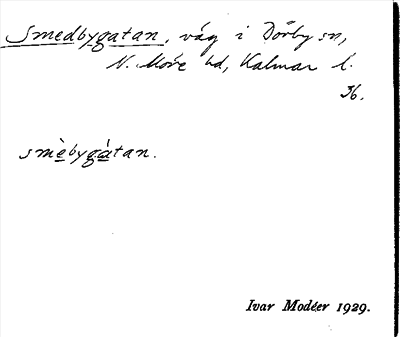 Smedbygatan, väg i Dörby sn,
N. Möre hd, Kalmar l.
H.
smèbygàtan.
Ivar Modéer 1929.